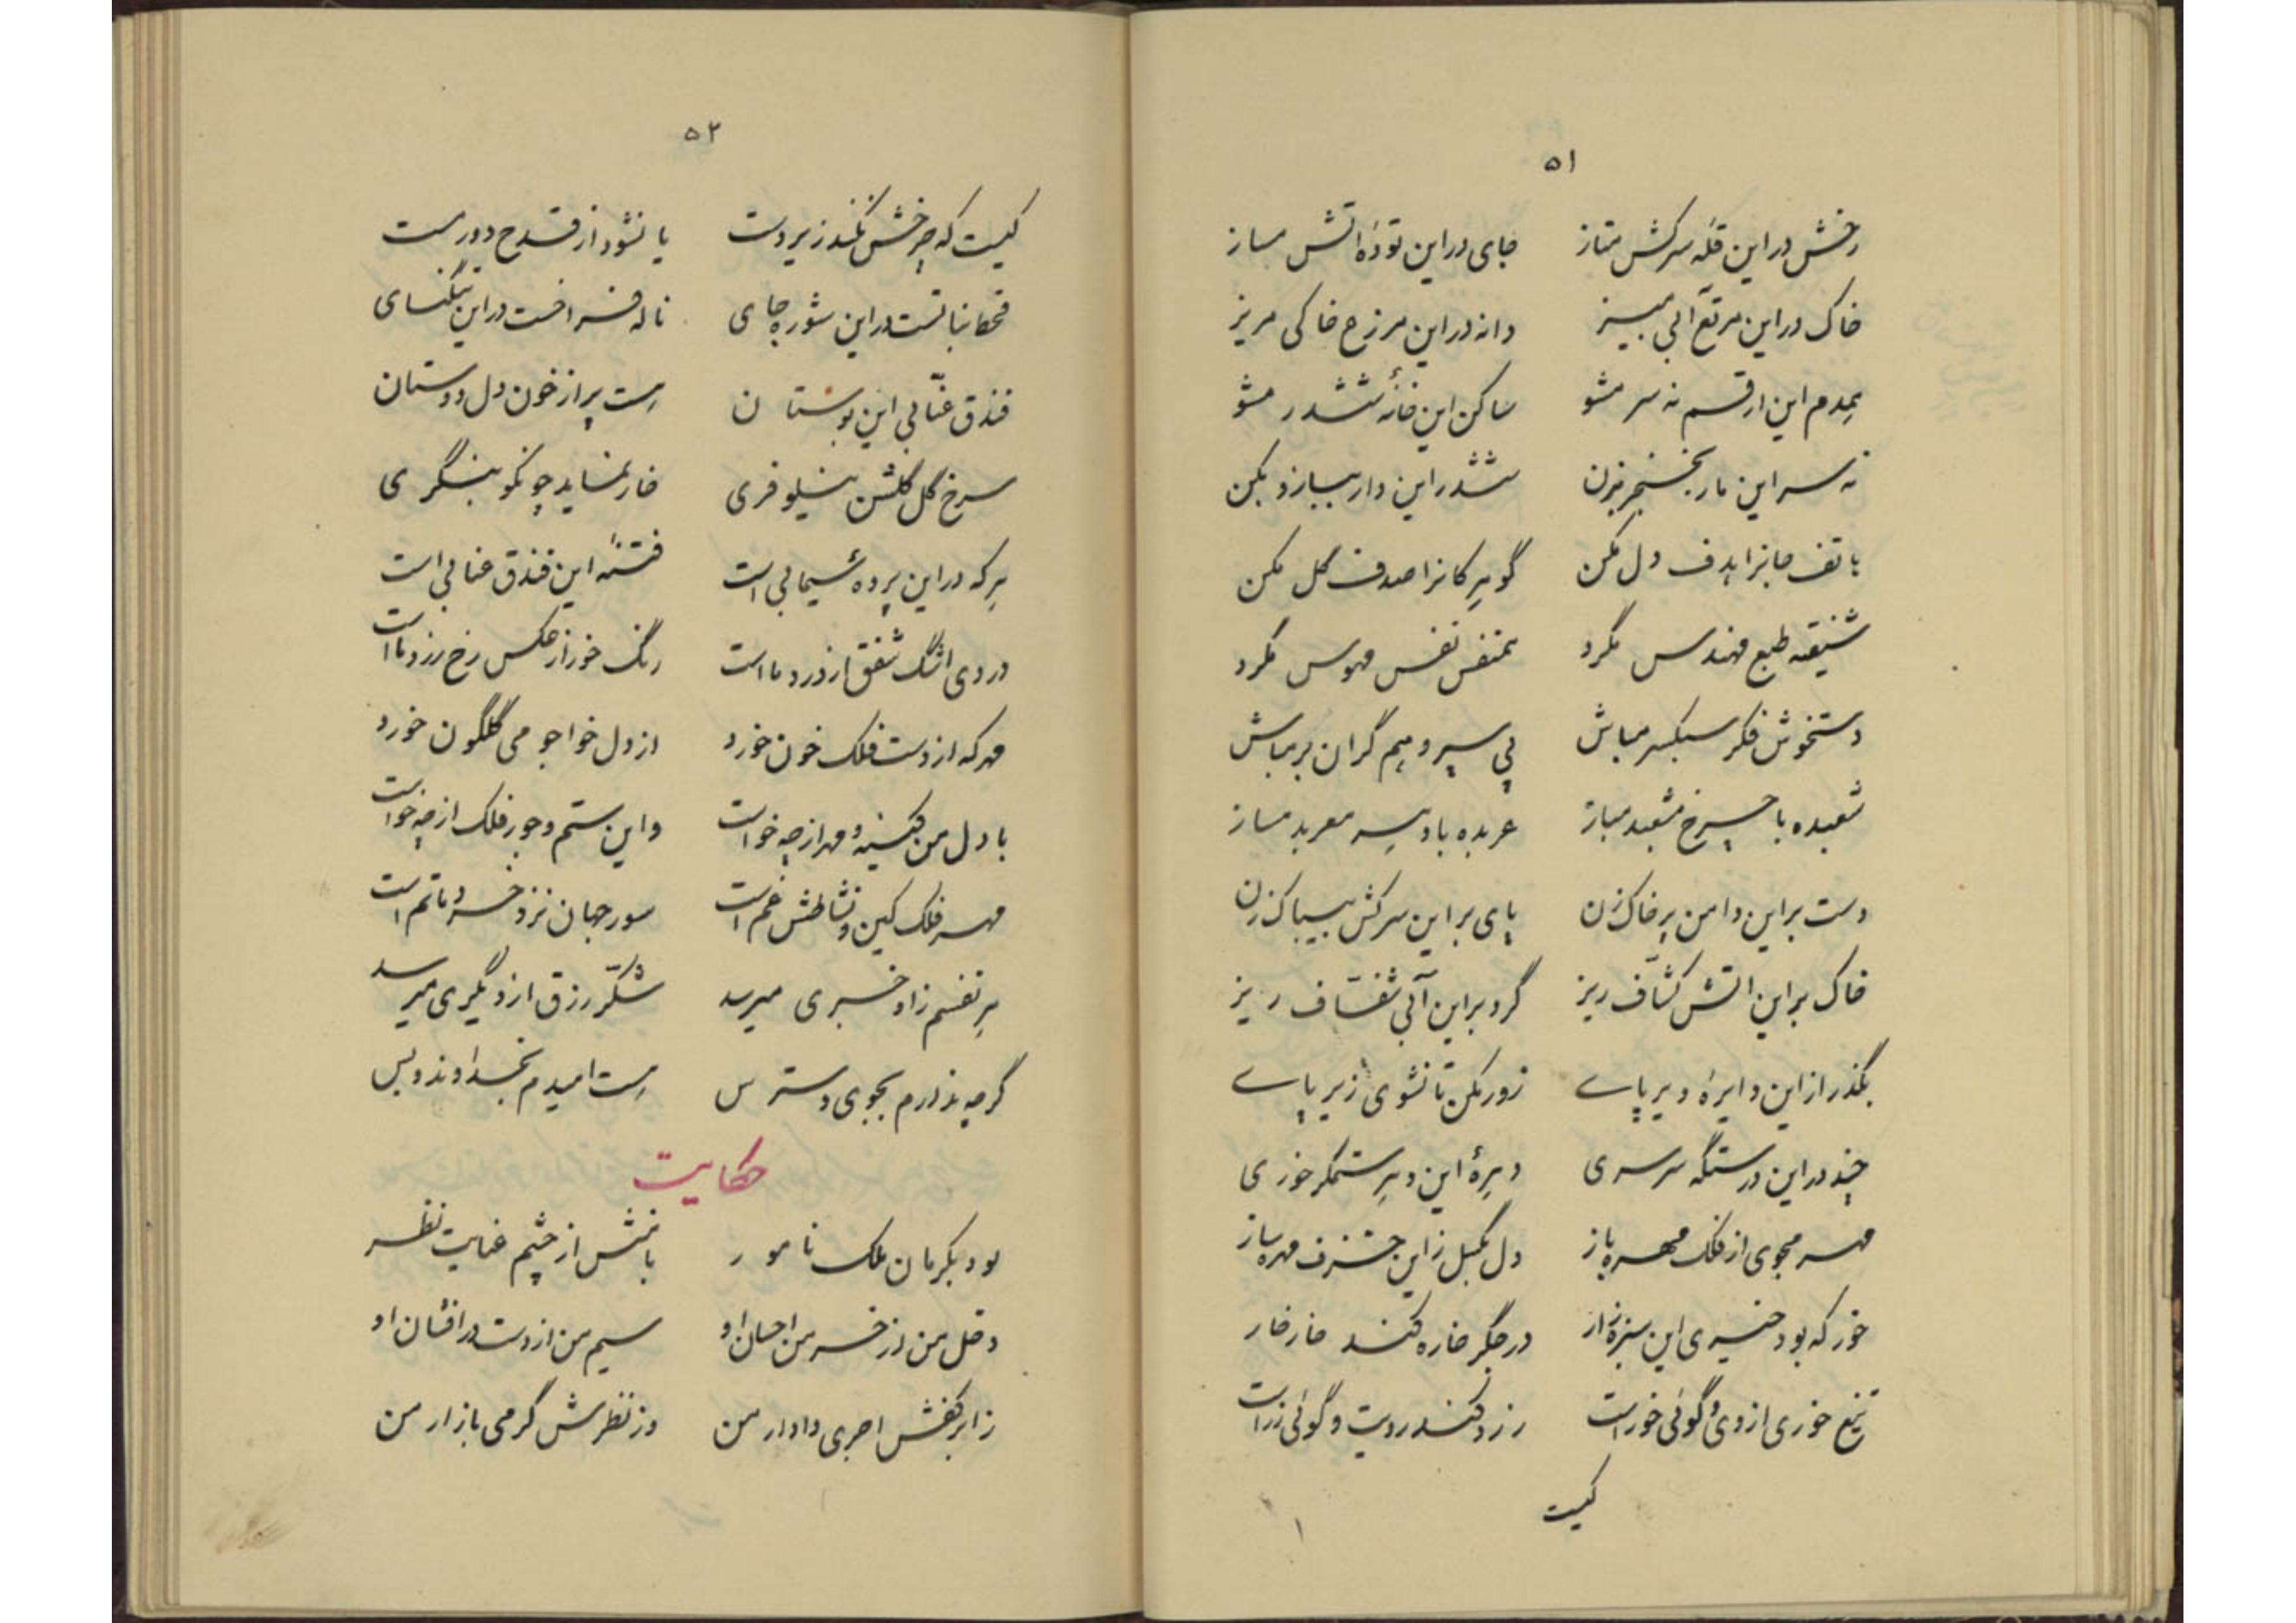 ۵۱
رخش در این قلهٔ سرکش متاز جای در این تودهٔ اتش مساز
خاک در این مرتع آبی مبیز دانه در این مزرع خاکی مریز
همدم این ارقم نه سر مشو ساکن این خانهٔ ششدر مشو
نه سر این مار بخنجر بزن ششدر این دار بباز و بکن
هاتف جانرا هدف دل مکن گوهر کانرا صدف گل مکن
شیفتهٔ طبع مهندس مگرد همنفس نفس مهوس مگرد
دستخوش فکر سبکسر مباش پی سپر وهم گران بر مباش
شعبده با چرخ مشعبد مباز عربده با دهر معربد مساز
دست بر این دامن پر خاک زن پای بر این سرکش بیباک زن
خاک بر این اتش کشاف ریز گرد بر این آبی شفاف ریز
بگذر از این دایرهٔ دیر پای زور مکن تا نشوی زیر پای
چند در این درستگه سرسری دهرهٔ این دهر ستمگر خوری
مهر مجوی از فلک مهره باز دل بگسل زاین خزف مهره باز
خور که بود خیری این سبزه زار در جگر خاره کند خار خار
تیغ خوری از وی و گوئی خور است زرد کند رویت و گوئی زر است
کیست
۵۲
کیست که چرخش نکند زیر دست یا نشود از قدح دور مست
قحط نباتست در این شوره جای ناله فراخست در این تنگنای
فندق عنابی این بوستان هست پر از خون دل دوستان
سرخ گل گلشن نیلوفری خار نماید چو نکو بنگری
هر که در این پرده سیمابی است فتنهٔ این فندق عنابی است
دردی اشک شفق از درد ما است رنگ خور از عکس رخ زرد ما است
مهر که از دست فلک خون خورد از دل خواجو می گلگون خورد
با دل من کینه و مهر از چه خواست واین ستم و جور فلک از چه خواست
مهر فلک کین و نشاطش غم است سور جهان نزد خرد ماتم است
هر نفسم زاد خبری میرسد شکر رزق از دگری میرسد
گرچه ندارم بجوی دسترس هست امیدم بخداوند و بس
حکایت
بود بکرمان ملک نامور با منش از چشم عنایت نظر
دخل من از خرمن احسان او سیم من از دست در افشان او
زابر کفش اجری و ادرار من وز نظرش گرمی بازار من